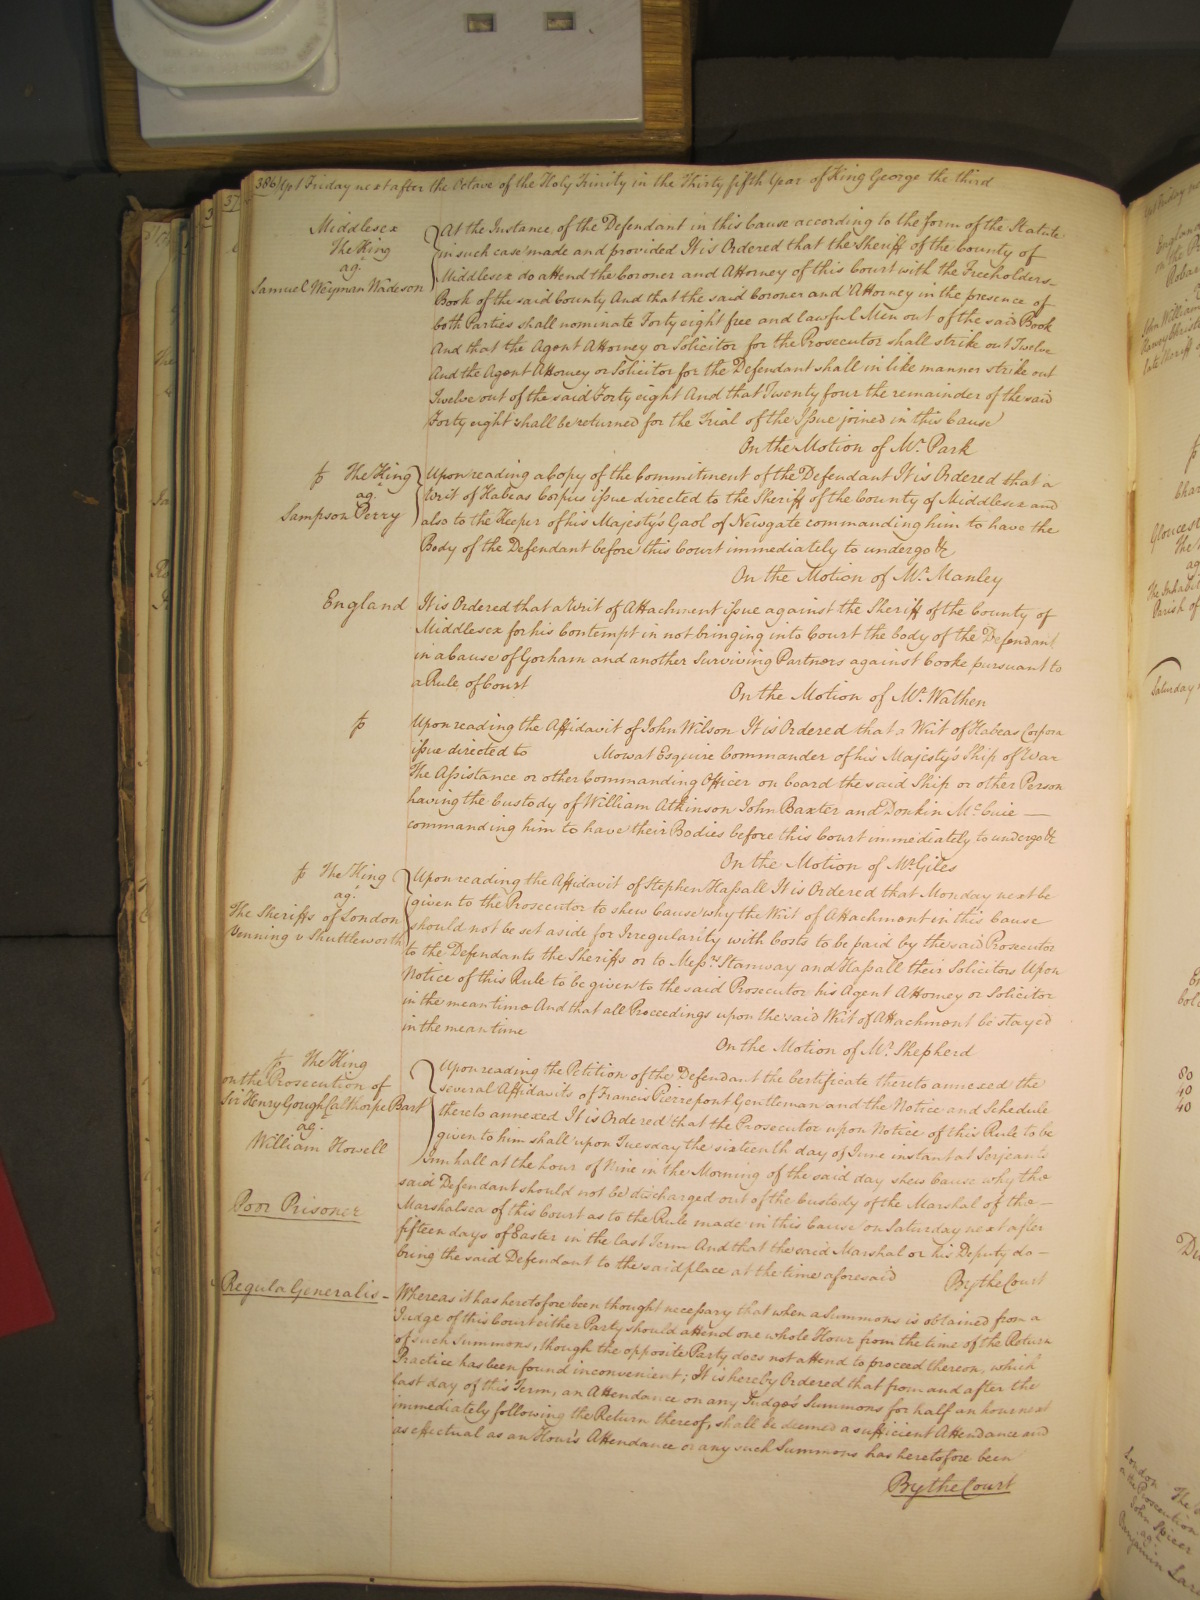 386 Yet Friday next after the Octave of the Holy Trinity in the Thirty fifth Year of King George the third
Middlesex
The King
agt
Samuel Weyman Wadeson
At the Instance of the Defendant in this Cause according to the form of the Statute
in such case made and provided It is Ordered that the Sheriff of the County of
Middlesex do attend the Coroner and Attorney of this Court with the Freeholders
Book of the said County And that the said Coroner and Attorney in the presence of
both Parties shall nominate Forty eight free and lawful Men out of the said Book
And that the Agent Attorney or Solicitor for the Prosecutor shall strike out Twelve
And the Agent Attorney or Solicitor for the Defendant shall in like manner strike out
Twelve out of the said Forty eight And that Twenty four the remainder of the said
Forty eight shall be returned for the Trial of the Issue joined in this Cause
On the Motion of Mr. Park
The King
agt
Sampson Perry
Upon reading a Copy of the Commitment of the Defendant It is Ordered that a
Writ of Habeas Corpus issue directed to the Sheriff of the County of Middlesex and
also to the Keeper of his Majesty's Gaol of Newgate commanding him to have the
Body of the Defendant before this Court immediately to undergo &c
On the Motion of Mr. Manley
England
It is Ordered that a Writ of Attachment issue against the Sheriff of the County of
Middlesex for his Contempt in not bringing into Court the body of the Defendant
in a Cause of Gorham and another Surviving Partners against Cooke pursuant to
a Rule of Court
On the Motion of Mr. Wathen
Upon reading the Affidavit of John Wilson It is Ordered that a Writ of Habeas Corpora
issue directed to Mowat Esquire Commander of his Majesty's Ship of War
The Assistance or other Commanding Officer on board the said Ship or other Person
having the Custody of William Atkinson John Baxter and Donkin McCuie —
commanding him to have their Bodies before this Court immediately to undergo &c
On the Motion of Mr. Giles
The King
agt
The Sheriffs of London
Venning v Shuttleworth
Upon reading the Affidavit of Stephen Hassall It is Ordered that Monday next be
given to the Prosecutor to shew Cause why the Writ of Attachment in this Cause
should not be set aside for Irregularity with Costs to be paid by the said Prosecutor
to the Defendants the Sheriffs or to Messrs Stanway and Hassall their Solicitors Upon
Notice of this Rule to be given to the said Prosecutor his Agent Attorney or Solicitor
in the meantime And that all Proceedings upon the said Writ of Attachment be stayed
in the mean time
On the Motion of Mr. Shepherd
The King
on the Prosecution of
Sir Henry Gough Calthorpe Bart
agt.
William Howell
Poor Prisoner
Upon reading the Petition of the Defendant the Certificate thereto annexed the
several Affidavits of Francis Pierrepont Gentleman and the Notice and Schedule
thereto annexed It is Ordered that the Prosecutor upon Notice of this Rule to be
given to him shall upon Tuesday the sixteenth day of June instant at Serjeants
Inn hall at the hour of Nine in the Morning of the said day shew Cause why the
said Defendant should not be discharged out of the Custody of the Marshal of the —
Marshalsea of this Court as to the Rule made in this Cause on Saturday next after
fifteen days of Easter in the last Term And that the said Marshal or his Deputy do —
bring the said Defendant to the said place at the time aforesaid By the Court
Regula Generalis -
Whereas it has heretofore been thought necessary that when a Summons is obtained from a
Judge of this Court either Party should attend one whole Hour from the time of the Return
of such Summons, though the opposite Party does not attend to proceed thereon, which
Practice has been found inconvenient; It is hereby Ordered that from and after the
last day of this Term, an Attendance on any Judge's Summons for half an hour next
immediately following the Return thereof, shall be deemed a sufficient Attendance and
as effectual as an Hour's Attendance on any such Summons has heretofore been
By the Court